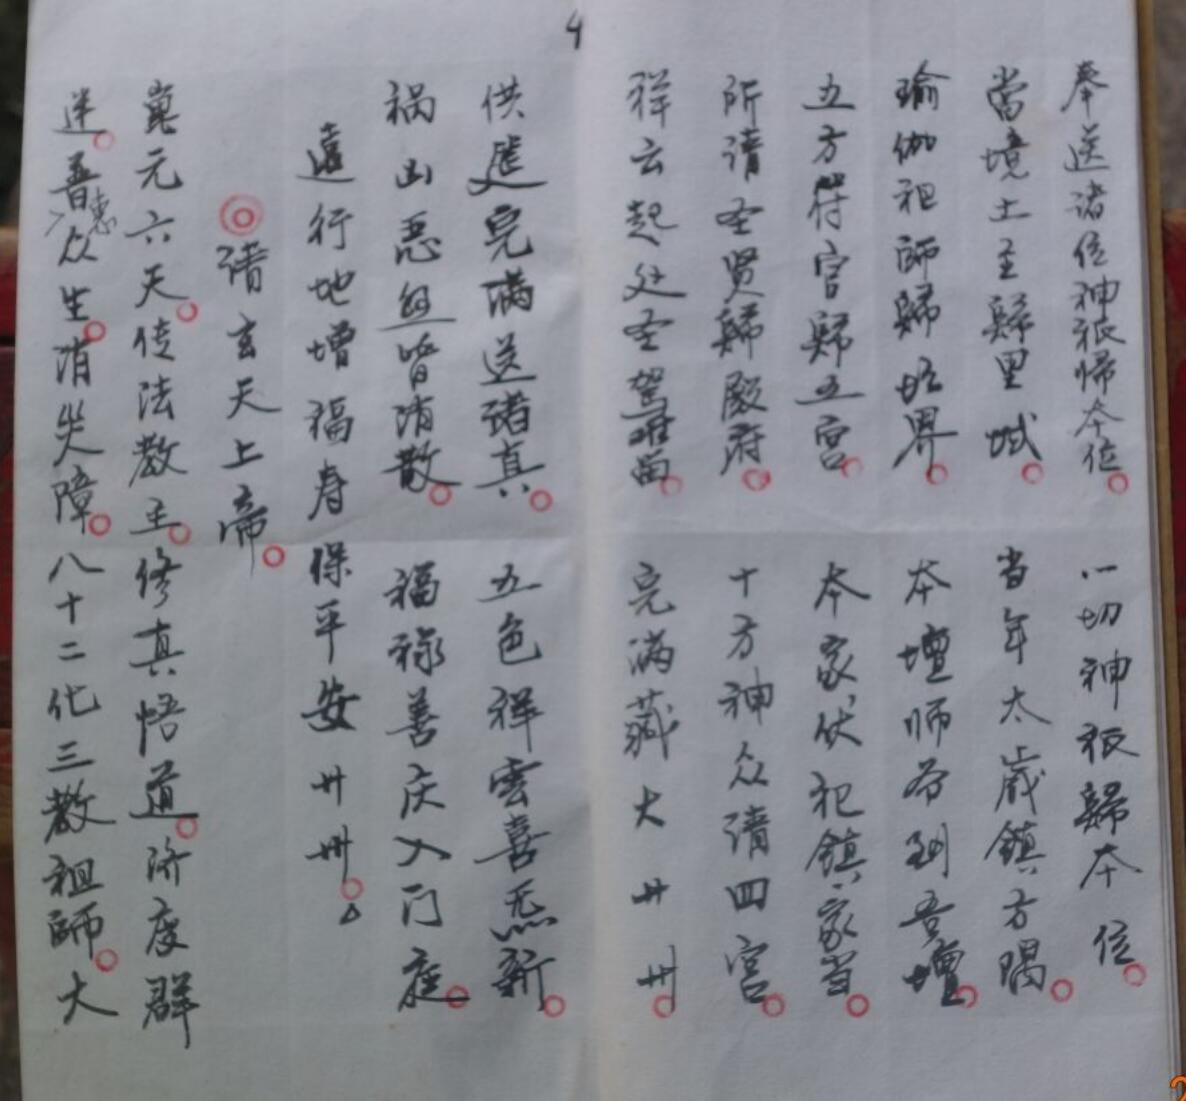 奉送诸位神祇帰本位 一切神祇歸本位
當境土主歸里域 当年太歳鎮方隅
瑜伽祖師歸坛界 本壇师爷到吾壇
五方符官歸五宫 本家伏犯鎮家当
所请圣贤歸殿府 十方神众請四宫
祥云起处圣驾 完满藏大卅卅
供筵完满送诸真 五色祥雲喜炁新
祸凶恶曲皆消散 福禄善庆入门庭
行地增福寿保平安卅卌
請玄天上帝
元六天传法教主修真悟道济度群
迷普惠众生消失障八十二化三教祖師大
4
2